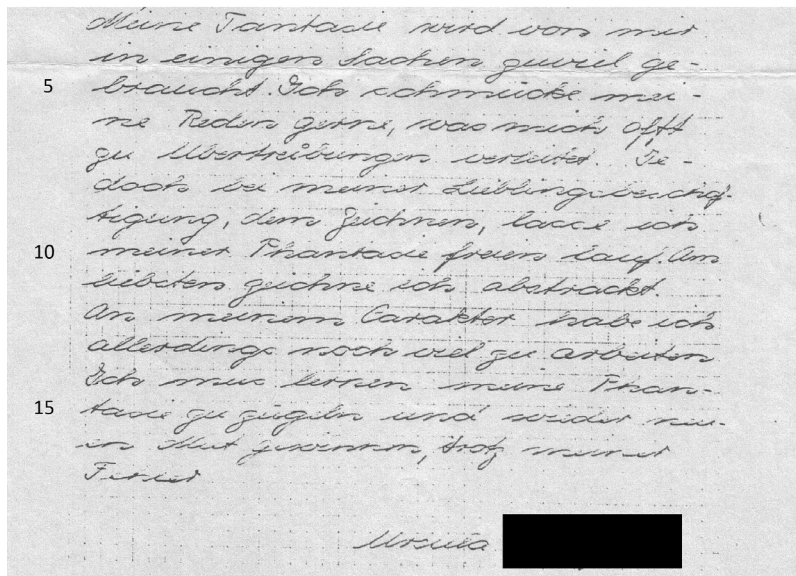 Meine Fantasie wird von mir
in einigen Sachen zuviel ge-
5 braucht. Ich schmücke mei-
ne Reden gerne, was mich offt
zu Übertreibungen verleitet. Je-
doch bei meiner Lieblingsbeschäf-
tigung, dem Zeichnen, lasse ich
10 meiner Phantasie freien lauf. Am
liebsten zeichne ich abstrackt.
An meinem Carakter habe ich
allerdings noch viel zu arbeiten
Ich mus lernen meine Phan-
15 tasie zu zügeln und wieder neu-
en Mut gewinnen, trotz meiner